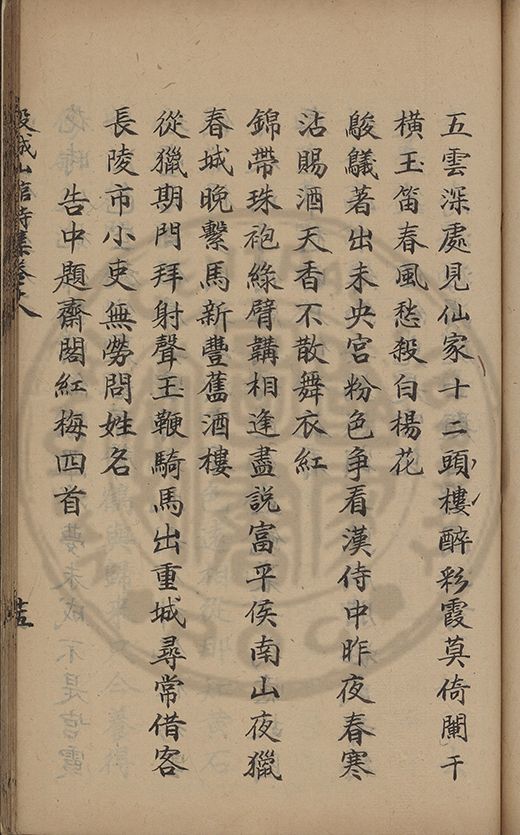 五雲深處見仙家十二頭樓醉彩霞莫倚闌干
橫玉笛春風愁殺白楊花
駿䴊著出未央宮粉色爭看漢侍中昨夜春寒
沾賜酒天香不散舞衣紅
錦帶珠袍綠臂韝相逢盡説富平侯南山夜獵
春城晚繫馬新豐舊酒樓
從獵期門拜射聲玉鞭騎馬出重城尋常借客
長陵市小吏無勞問姓名
告中題齋閣紅梅四首
穀城山館詩集卷十八
十五